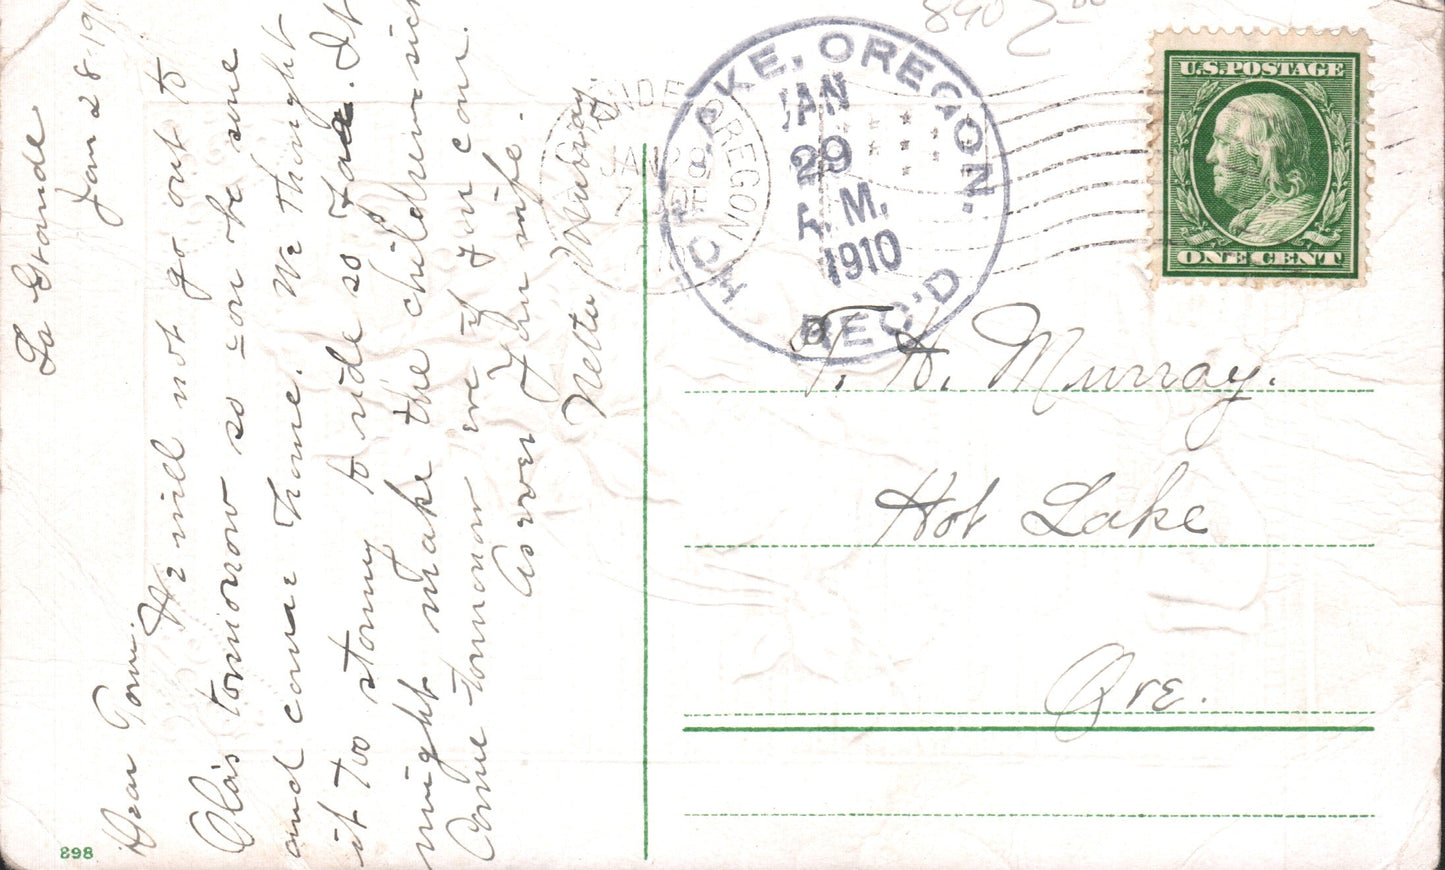 La Grande
Jan 28-191
Dear Tom.
We will not go out to
Ola's tomorrow so you be sure
and come home. We thought
it too stormy to ride so far. It
might make the children sick
Come tomorrow eve if you can.
As ever Your wife.
Netta Murray
890
HOT LAKE, OREGON.
JAN
29
A.M.
1910
REC'D
GRANDE OREGON
JAN 28
U.S. POSTAGE
ONE CENT
T. H. Murray.
Hot Lake
Ore.
898